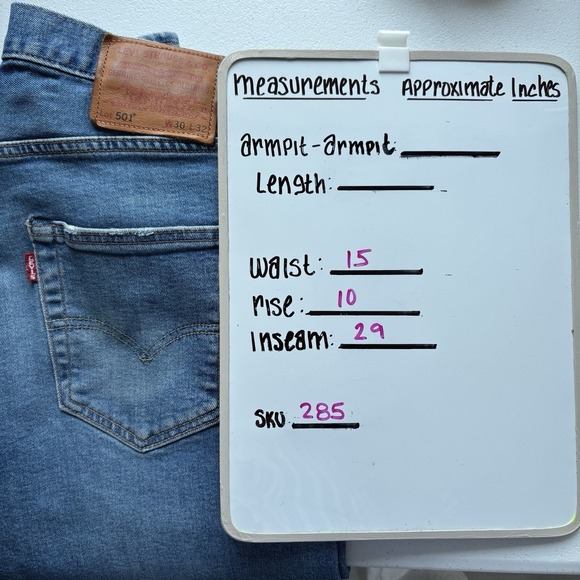 Lot 501® W30 L32
LEVI'S
measurements Approximate Inches
armpit-armpit:
Length:
waist: 15
rise: 10
Inseam: 29
SKU 285